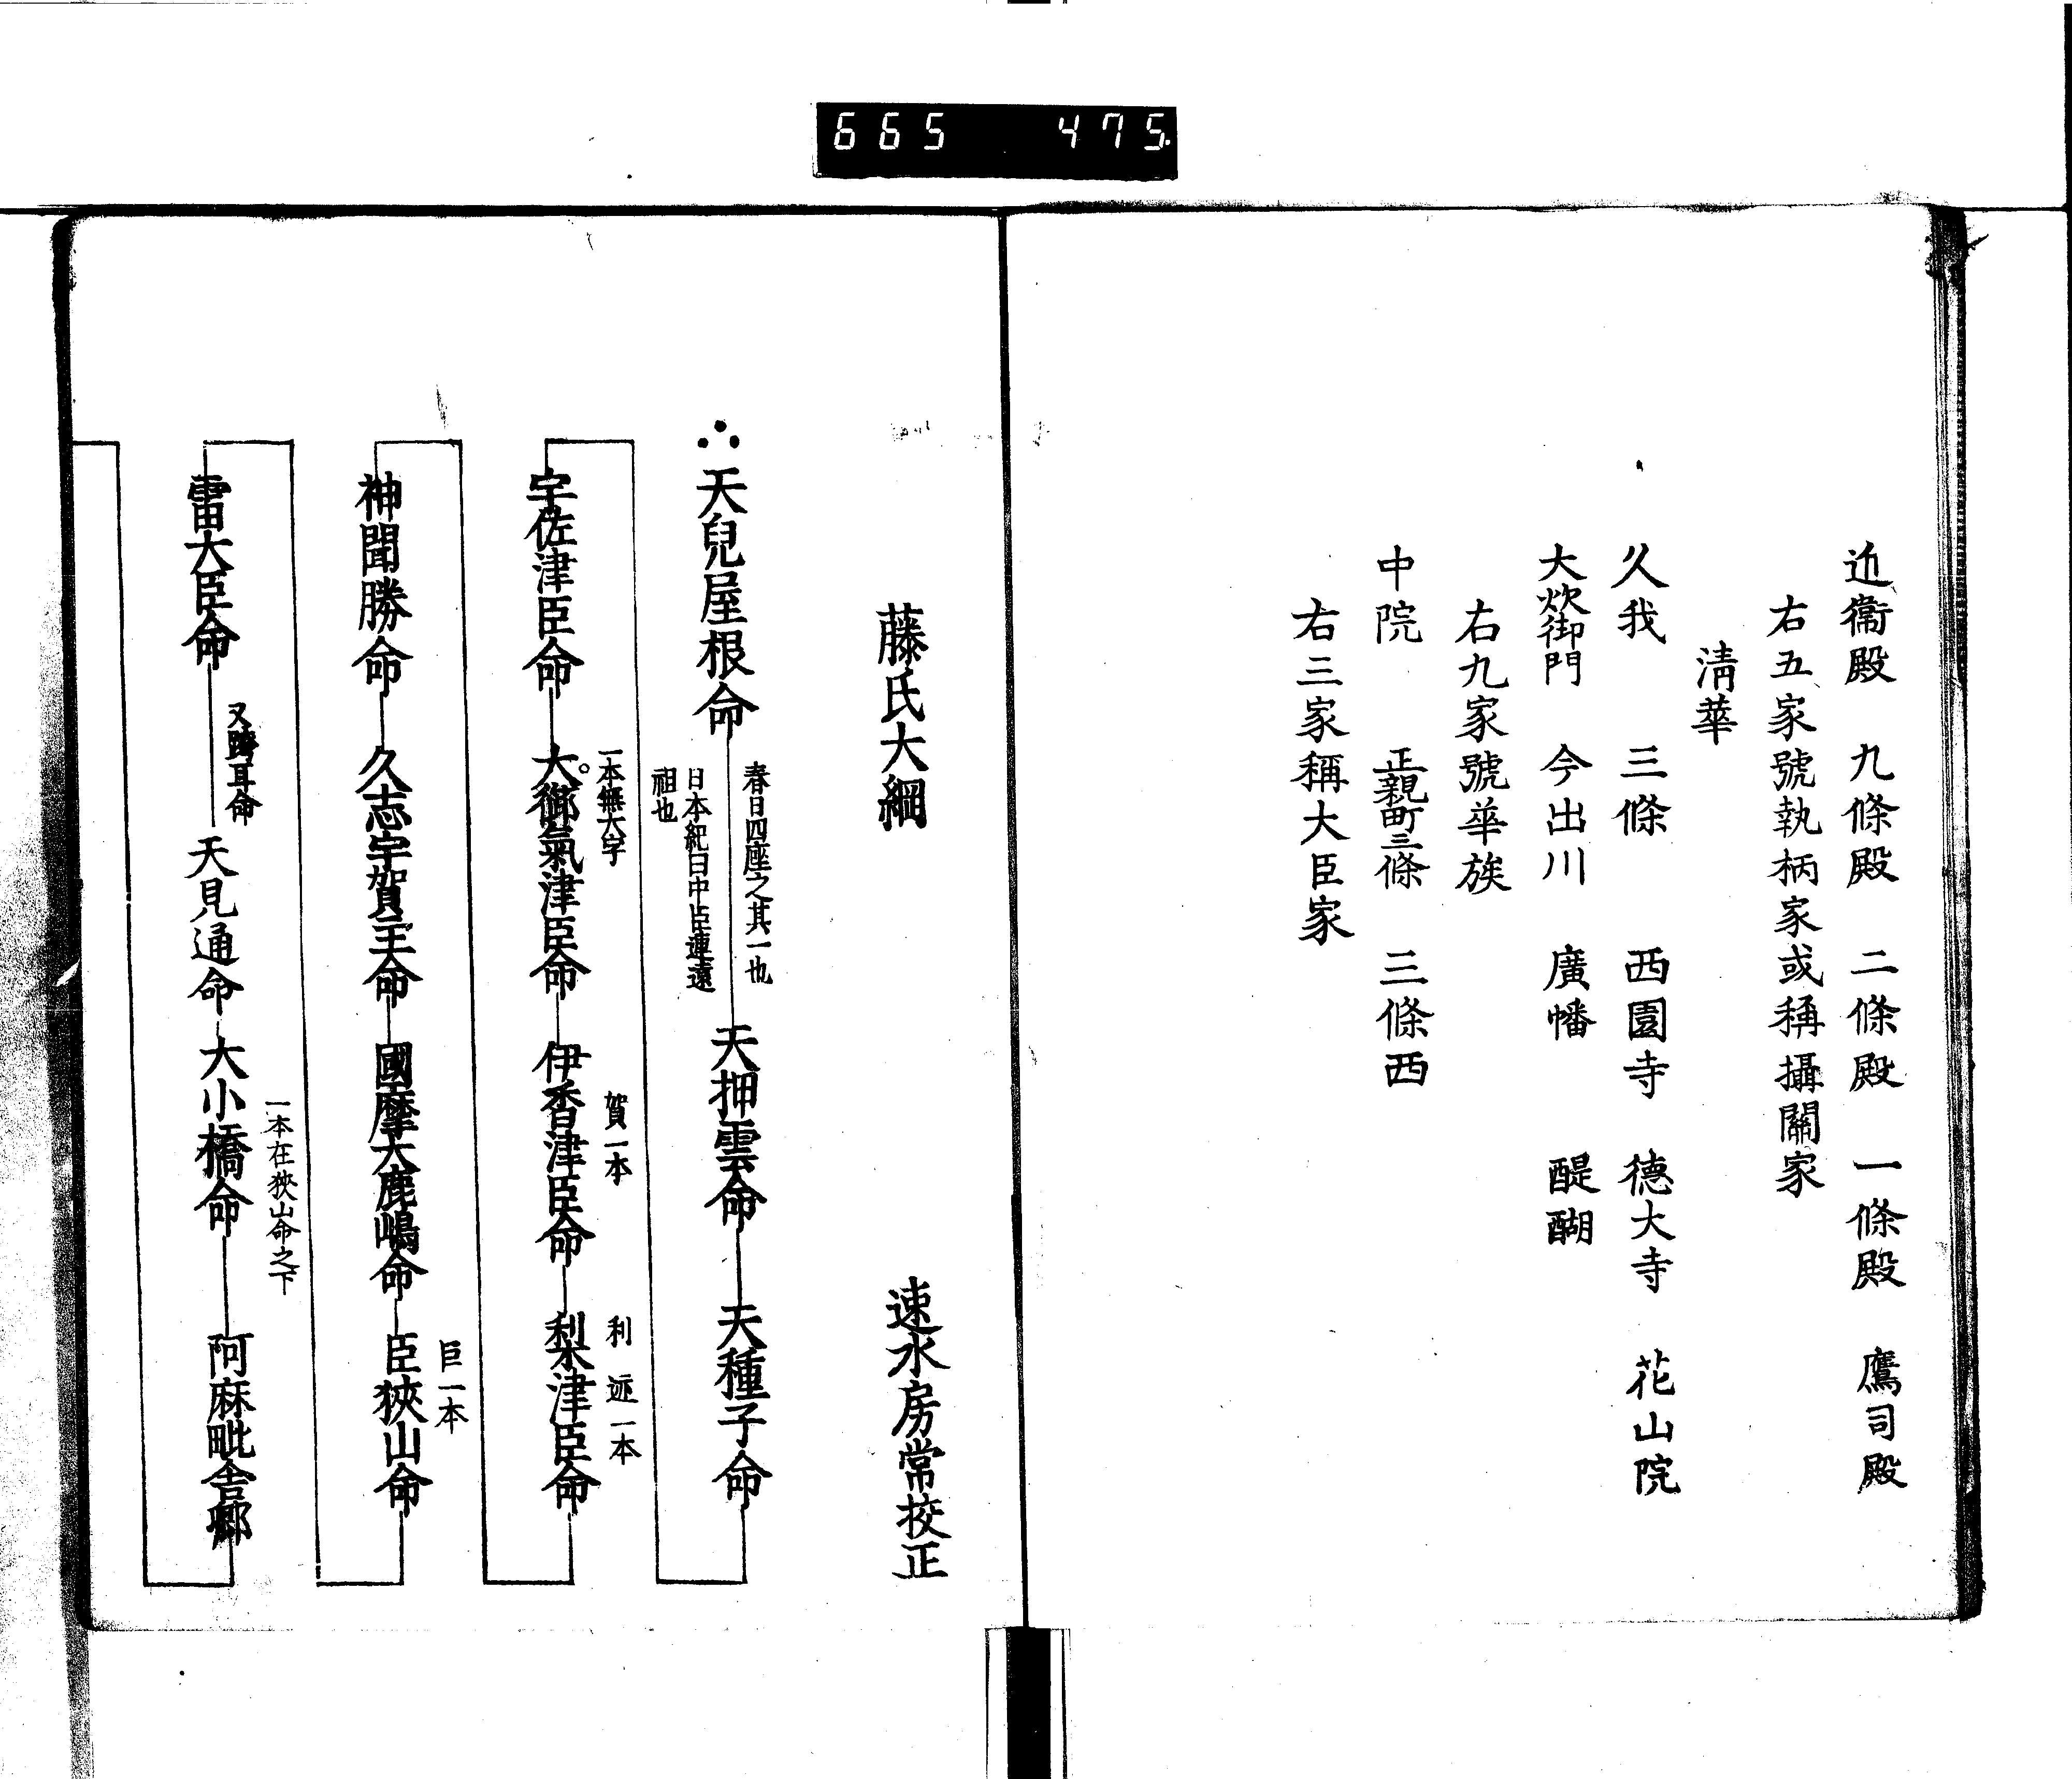 665 475.
近衞殿 九條殿 二條殿 一條殿 鷹司殿
右五家號執柄家或稱攝關家
淸華
久我 三條 西園寺 德大寺 花山院
大炊御門 今出川 廣幡 醍醐
右九家號華族
中院 正親町三條 三條西
右三家稱大臣家
藤氏大綱 速水房常挍正
天兒屋根命 天押雲命 天種子命
春日四座之其一也
日本紀曰中臣連遠
祖也
宇佐津臣命 大御氣津臣命 伊香津臣命 梨津臣命
一本無大字
賀一本
利 迊一本
神聞勝命 久志宇賀主命 國摩大鹿嶋命 臣狹山命
巨一本
雷大臣命 天見通命 大小橋命 阿麻毗舍卿
又跨耳命
一本在狹山命之下